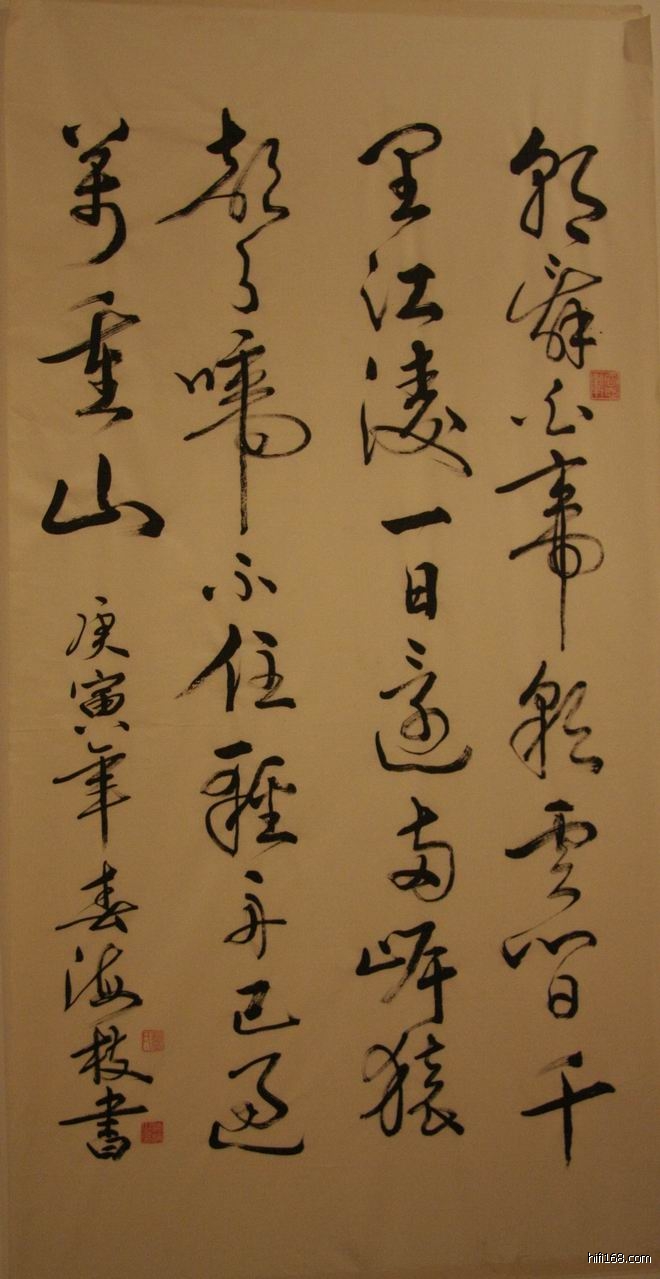 朝辭白帝彩雲間千
里江陵一日還兩岸猿
聲啼不住輕舟已過
萬重山 庚寅年春海枝書
hifi168.com